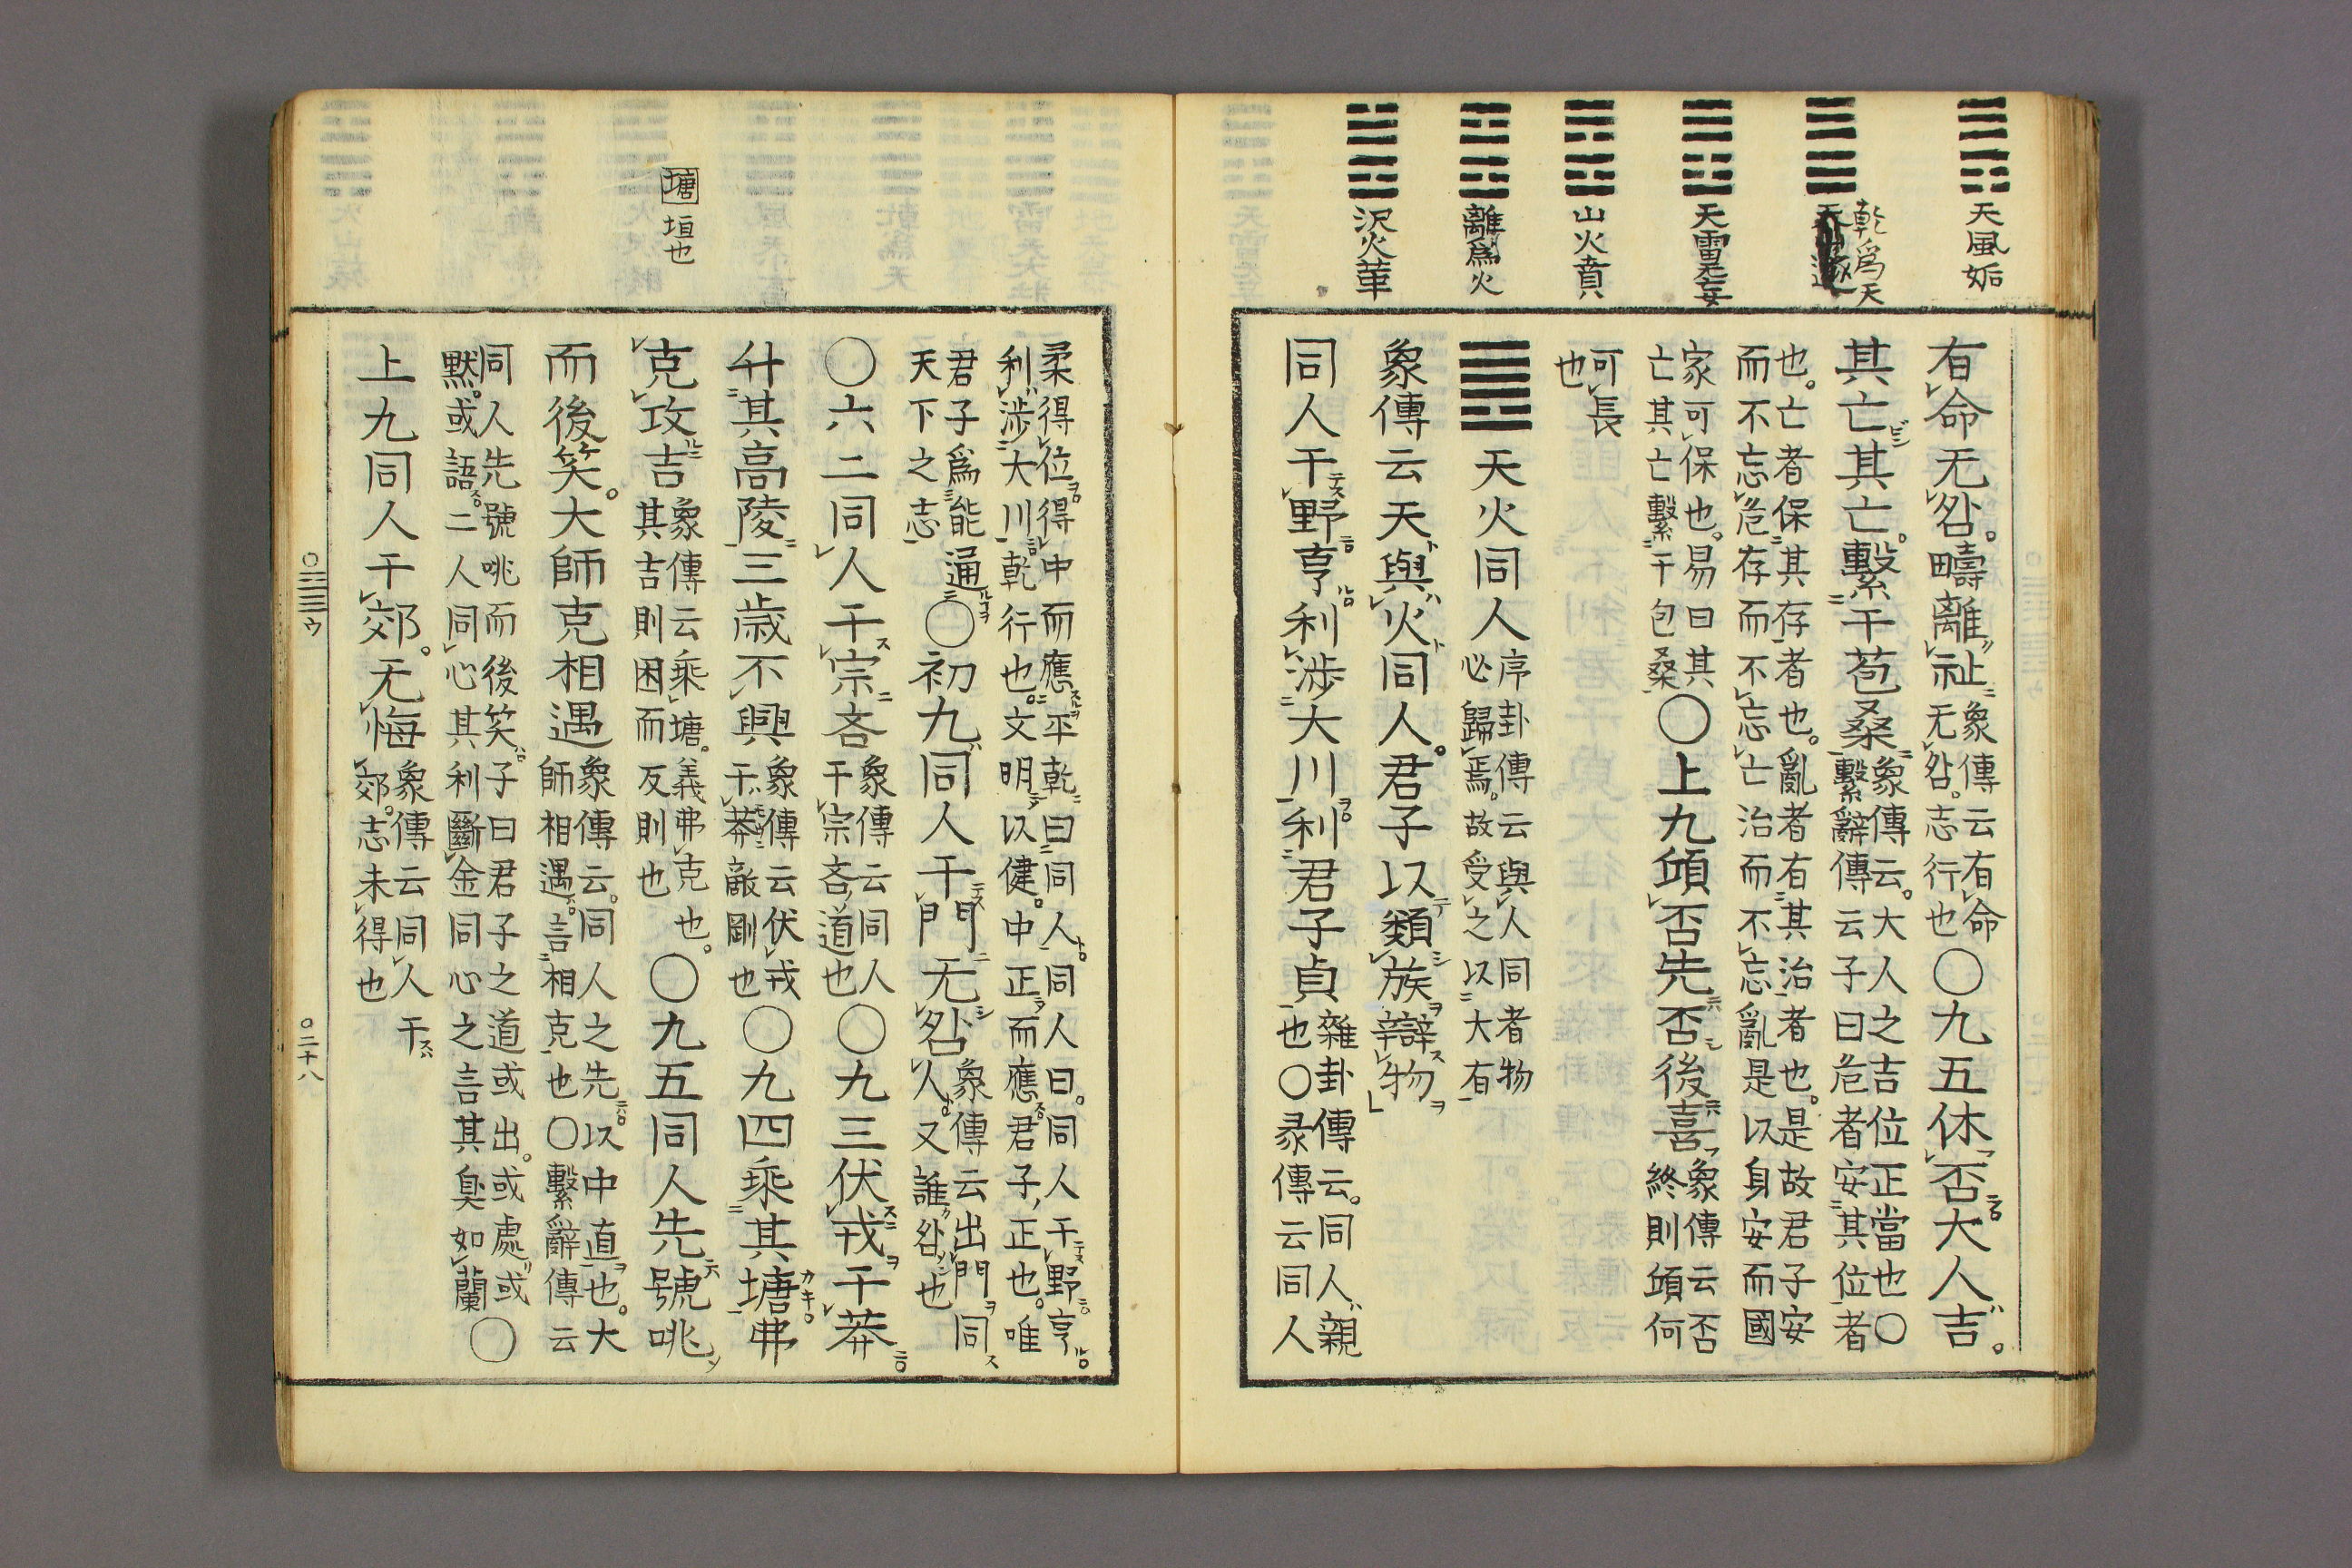 天風姤
乾爲天
天雷无妄
山火賁
離爲火
沢火革
有命无咎。疇離祉
象傳云有命
无咎。志行也
〇九五休否大人吉。
其亡其亡。繫于苞桑
象傳云。大人之吉位正當也〇
繫辭傳云子曰危者安其位者
也。亡者保其存者也。亂者有其治者也。是故君子安
而不忘危存而不忘亡治而不忘亂是以身安而國
家可保也。易曰其
亡其亡繫于包桑
〇上九傾否先否後喜
象傳云否
終則傾何
可長
也
天火同人
序卦傳云與人同者物
必歸焉。故受之以大有
象傳云天與火同人。君子以類族辯物
同人于野亨利涉大川利君子貞
雜卦傳云。同人親
也〇彖傳云同人
柔得位得中而應乎乾曰同人同人曰。同人于野亨
利涉大川乾行也。文明以健。中正而應君子正也。唯
君子爲能通
天下之志
〇初九同人于門无咎
象傳云出門同
人又誰咎也
〇六二同人于宗吝
象傳云同人
于宗吝道也
〇九三伏戎于莽
升其高陵三歳不興
象傳云伏戎
于莽敵剛也
〇九四乘其墉弗
克攻吉
象傳云乘墉。義弗克也。
其吉則困而反則也
〇九五同人先號咷
而後笑。大師克相遇
象傳云。同人之先以中直也。大
師相遇。言相克也〇繫辭傳云
同人先號咷而後笑子曰君子之道或出。或處或
默。或語。二人同心其利斷金同心之言其臭如蘭
〇
上九同人于郊。无悔
象傳云同人于
郊。志未得也
墉 垣也
〇ウ
〇二十八